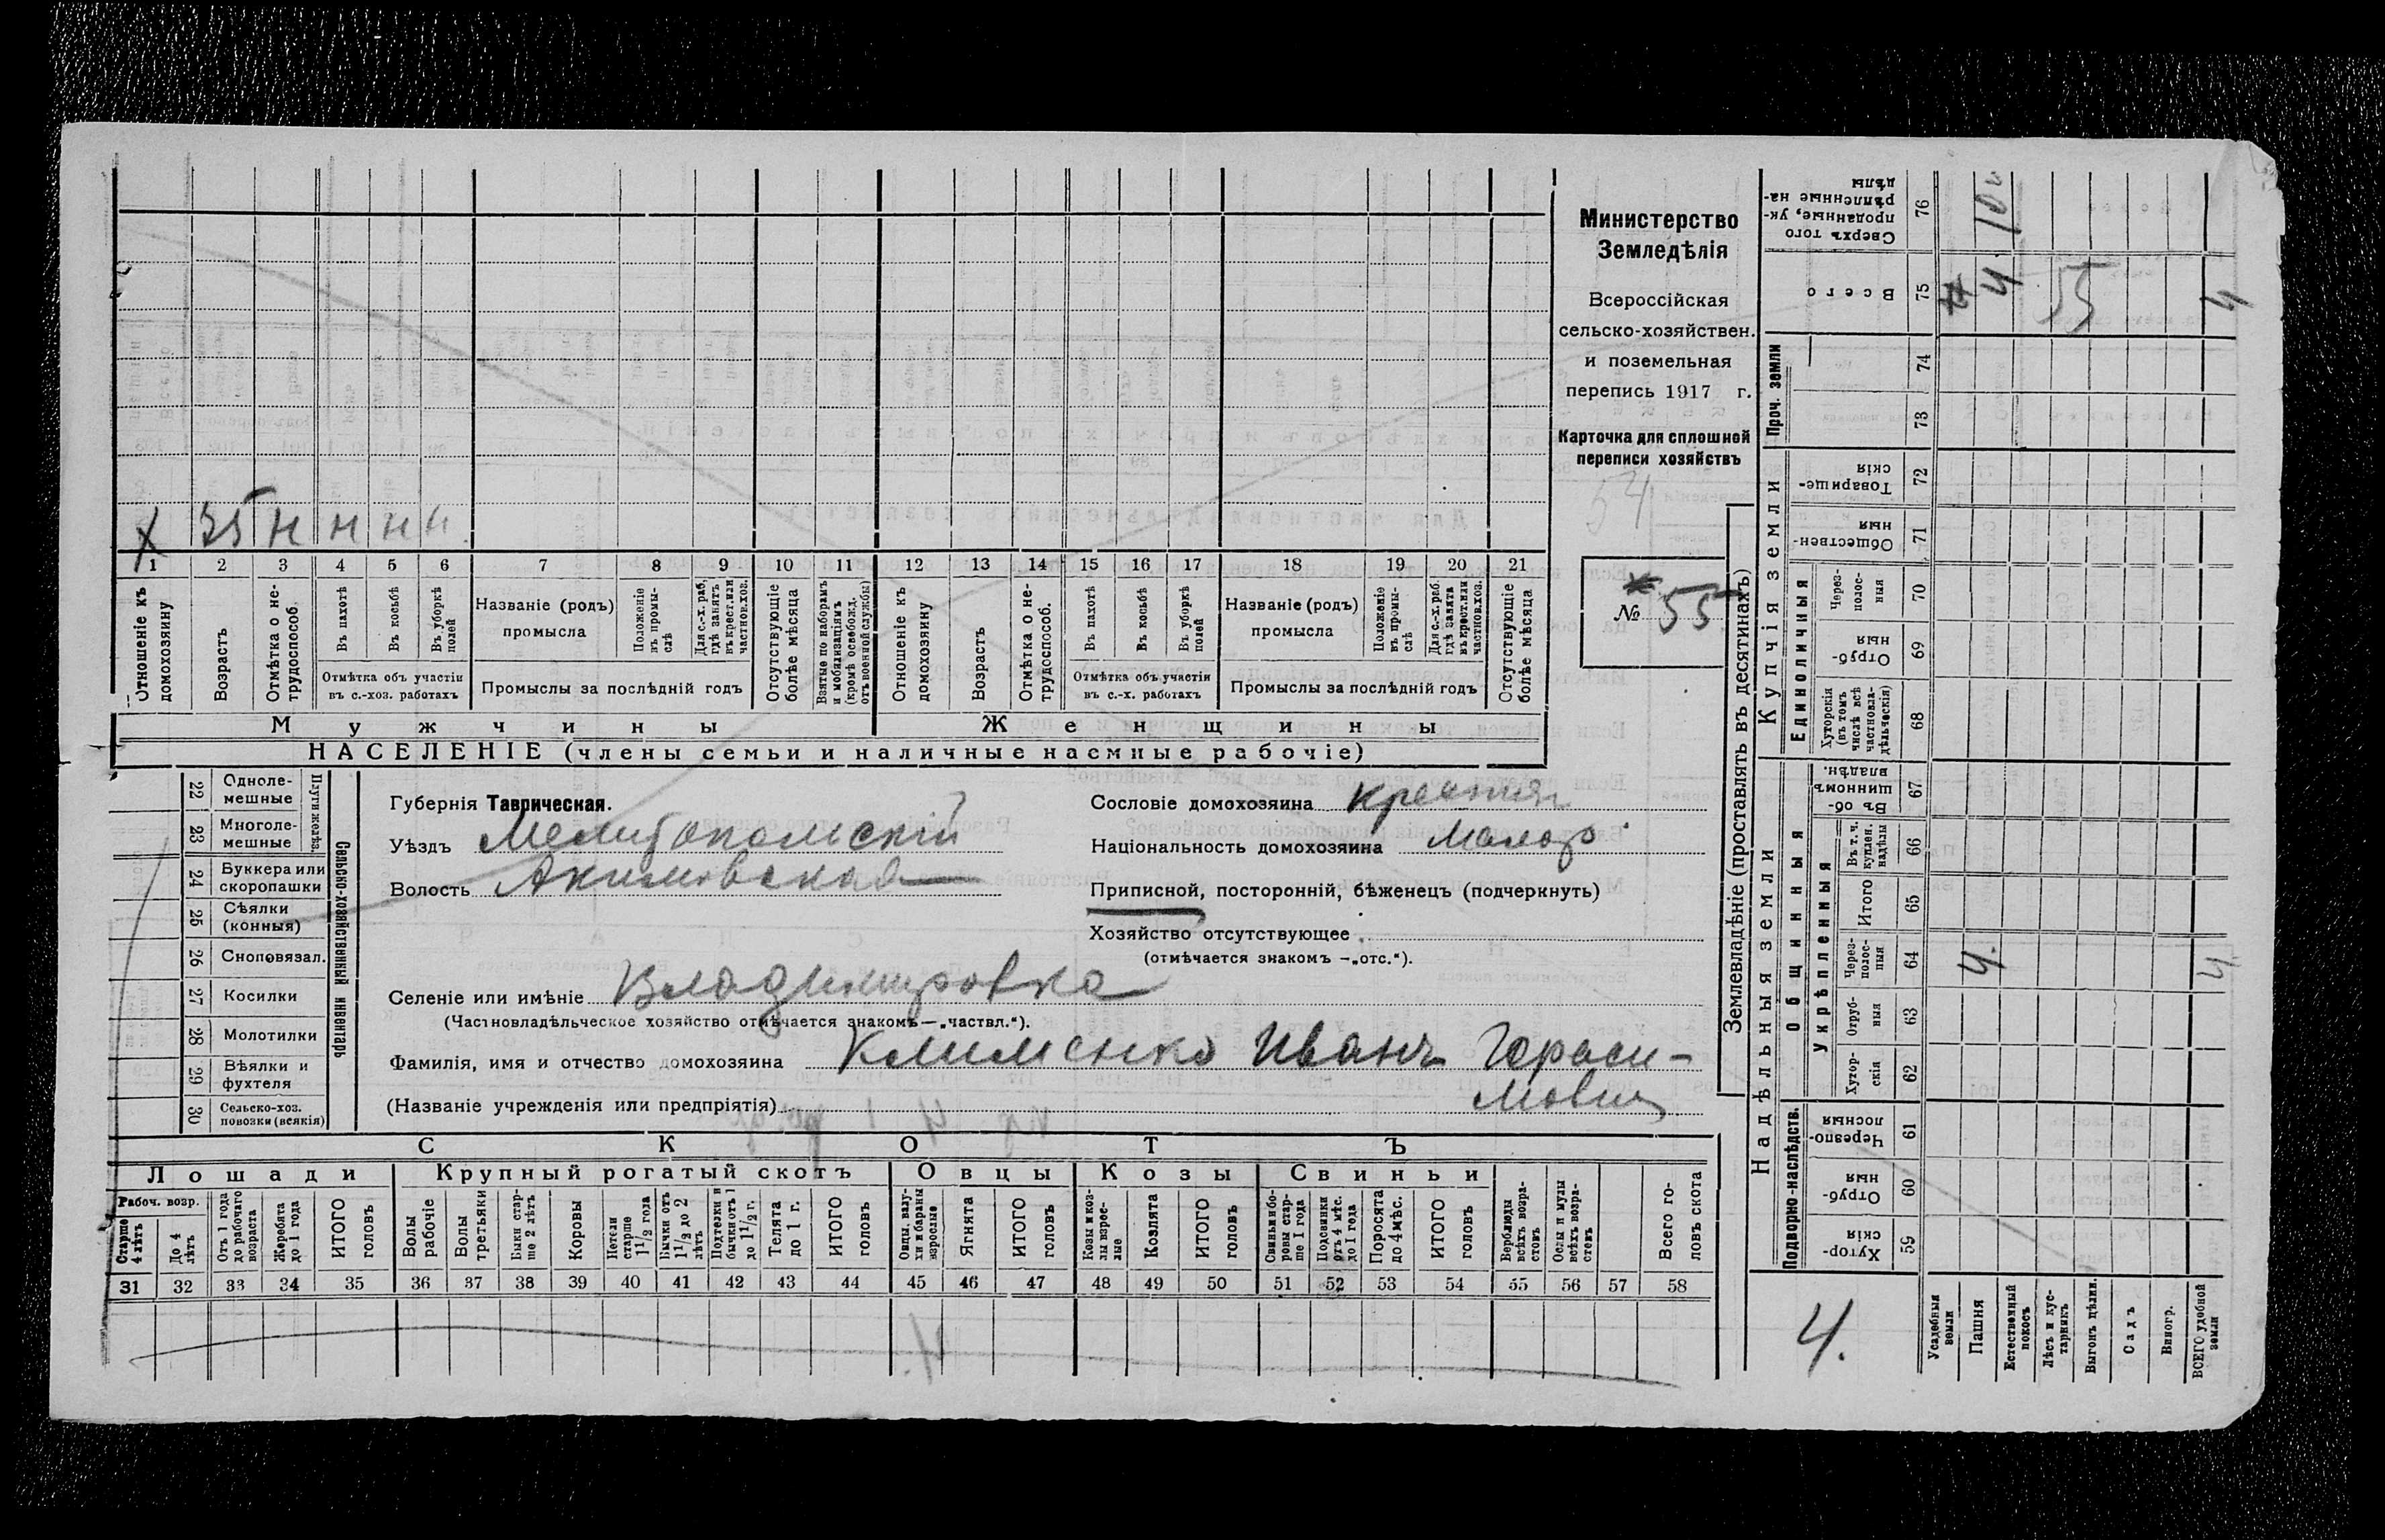 Министерство
Земледѣлія
Всероссійская
сельско-хозяйствен.
и поземельная
перепись 1917 г.
Карточка для сплошной
переписи хозяйствъ
54
№ 55
Х 35 н н н н
1 2 3 4 5 6 7 8 9 10 11 12 13 14 15 16 17 18 19 20 21
Отношеніе къ домохозяину
Возрастъ
Отмѣтка о не-трудоспособ.
Въ пахотѣ
Въ косьбѣ
Въ уборкѣ полей
Отмѣтка объ участіи
въ с.-хоз. работахъ
Названіе (родъ)
промысла
Положеніе въ промы-слѣ
Для с.-х. раб., гдѣ занятъ въ крест. или частнов. хоз.
Промыслы за послѣдній годъ
Отсутствующіе болѣе мѣсяца
Взятые по наборамъ и мобилизаціямъ (кромѣ освобожд. отъ военной службы)
Отношеніе къ домохозяину
Возрастъ
Отмѣтка о не-трудоспособ.
Въ пахотѣ
Въ косьбѣ
Въ уборкѣ полей
Отмѣтка объ участіи
въ с.-х. работахъ
Названіе (родъ)
промысла
Положеніе въ промы-слѣ
Для с.-х. раб. гдѣ занята въ крест. или частнов. хоз.
Промыслы за послѣдній годъ
Отсутствующіе болѣе мѣсяца
Мужчины Женщины
НАСЕЛЕНІЕ (члены семьи и наличные наемные рабочіе)
Сельско-хозяйственный инвентарь
Плуги желѣз.
22 Одноле-мешные
23 Многоле-мешные
24 Буккера или скоропашки
25 Сѣялки (конныя)
26 Сноповязал.
27 Косилки
28 Молотилки
29 Вѣялки и фухтеля
30 Сельско-хоз. повозки (всякія)
Губернія Таврическая.
Уѣздъ Мелитопольскій
Волость Акимовская
Сословіе домохозяина крестян
Національность домохозяина Малор.
Приписной, посторонній, бѣженецъ (подчеркнуть)
Хозяйство отсутствующее
(отмѣчается знакомъ —„отс.“).
Селеніе или имѣніе Владимировка
(Частновладѣльческое хозяйство отмѣчается знакомъ—„частвл.“).
Фамилія, имя и отчество домохозяина Клименко Иванъ Гераси-
(Названіе учрежденія или предпріятія) мовичъ
СКОТЪ
Лошади Крупный рогатый скотъ Овцы Козы Свиньи
Рабоч. возр.
Старше 4 лѣтъ
До 4 лѣтъ
Отъ 1 года до рабочаго возраста
Жеребята до 1 года
ИТОГО головъ
Волы рабочіе
Волы третьяки
Быки стар-ше 2 лѣтъ
Коровы
Нетели старше 1 1/2 года
Бычки отъ 1 1/2 до 2 лѣтъ
Подтелки и бычки отъ 1 до 1 1/2 г.
Телята до 1 г.
ИТОГО головъ
Овцы, валу-хи и бараны взрослые
Ягнята
ИТОГО головъ
Козы и коз-лы взрос-лые
Козлята
ИТОГО головъ
Свиньи и бо-ровы стар-ше 1 года
Подсвинки отъ 4 мѣс. до 1 года
Поросята до 4 мѣс.
ИТОГО головъ
Верблюды всѣхъ возра-стовъ
Ослы и мулы всѣхъ возра-стовъ
Всего го-ловъ скота
31 32 33 34 35 36 37 38 39 40 41 42 43 44 45 46 47 48 49 50 51 52 53 54 55 56 57 58
Землевладѣніе (проставлять въ десятинахъ)
Надѣльныя земли Купчія земли Проч. земли
Подворно-наслѣдств. Общинныя Единоличныя
Укрѣпленныя
Хутор-скія 59
Отруб-ныя 60
Черезпо-лосныя 61
Хутор-скія 62
Отруб-ныя 63
Через-полос-ныя 64
Итого 65
Въ т. ч. куплен. надѣлы 66
Въ об-щинномъ владѣн. 67
Хуторскія (въ томъ числѣ всѣ частновла-дѣльческія) 68
Отруб-ныя 69
Через-полос-ныя 70
Обществен-ныя 71
Товарище-скія 72
73
74
Всего 75
Сверхъ того проданные, ук-рѣпленные на-дѣлы 76
4.
Усадебныя земли
Пашня 4. 4
Естественный покосъ
Лѣсъ и кус-тарникъ 55
Выгонъ цѣлин.
Садъ
Виногр.
ВСЕГО удобной земли 4. 4